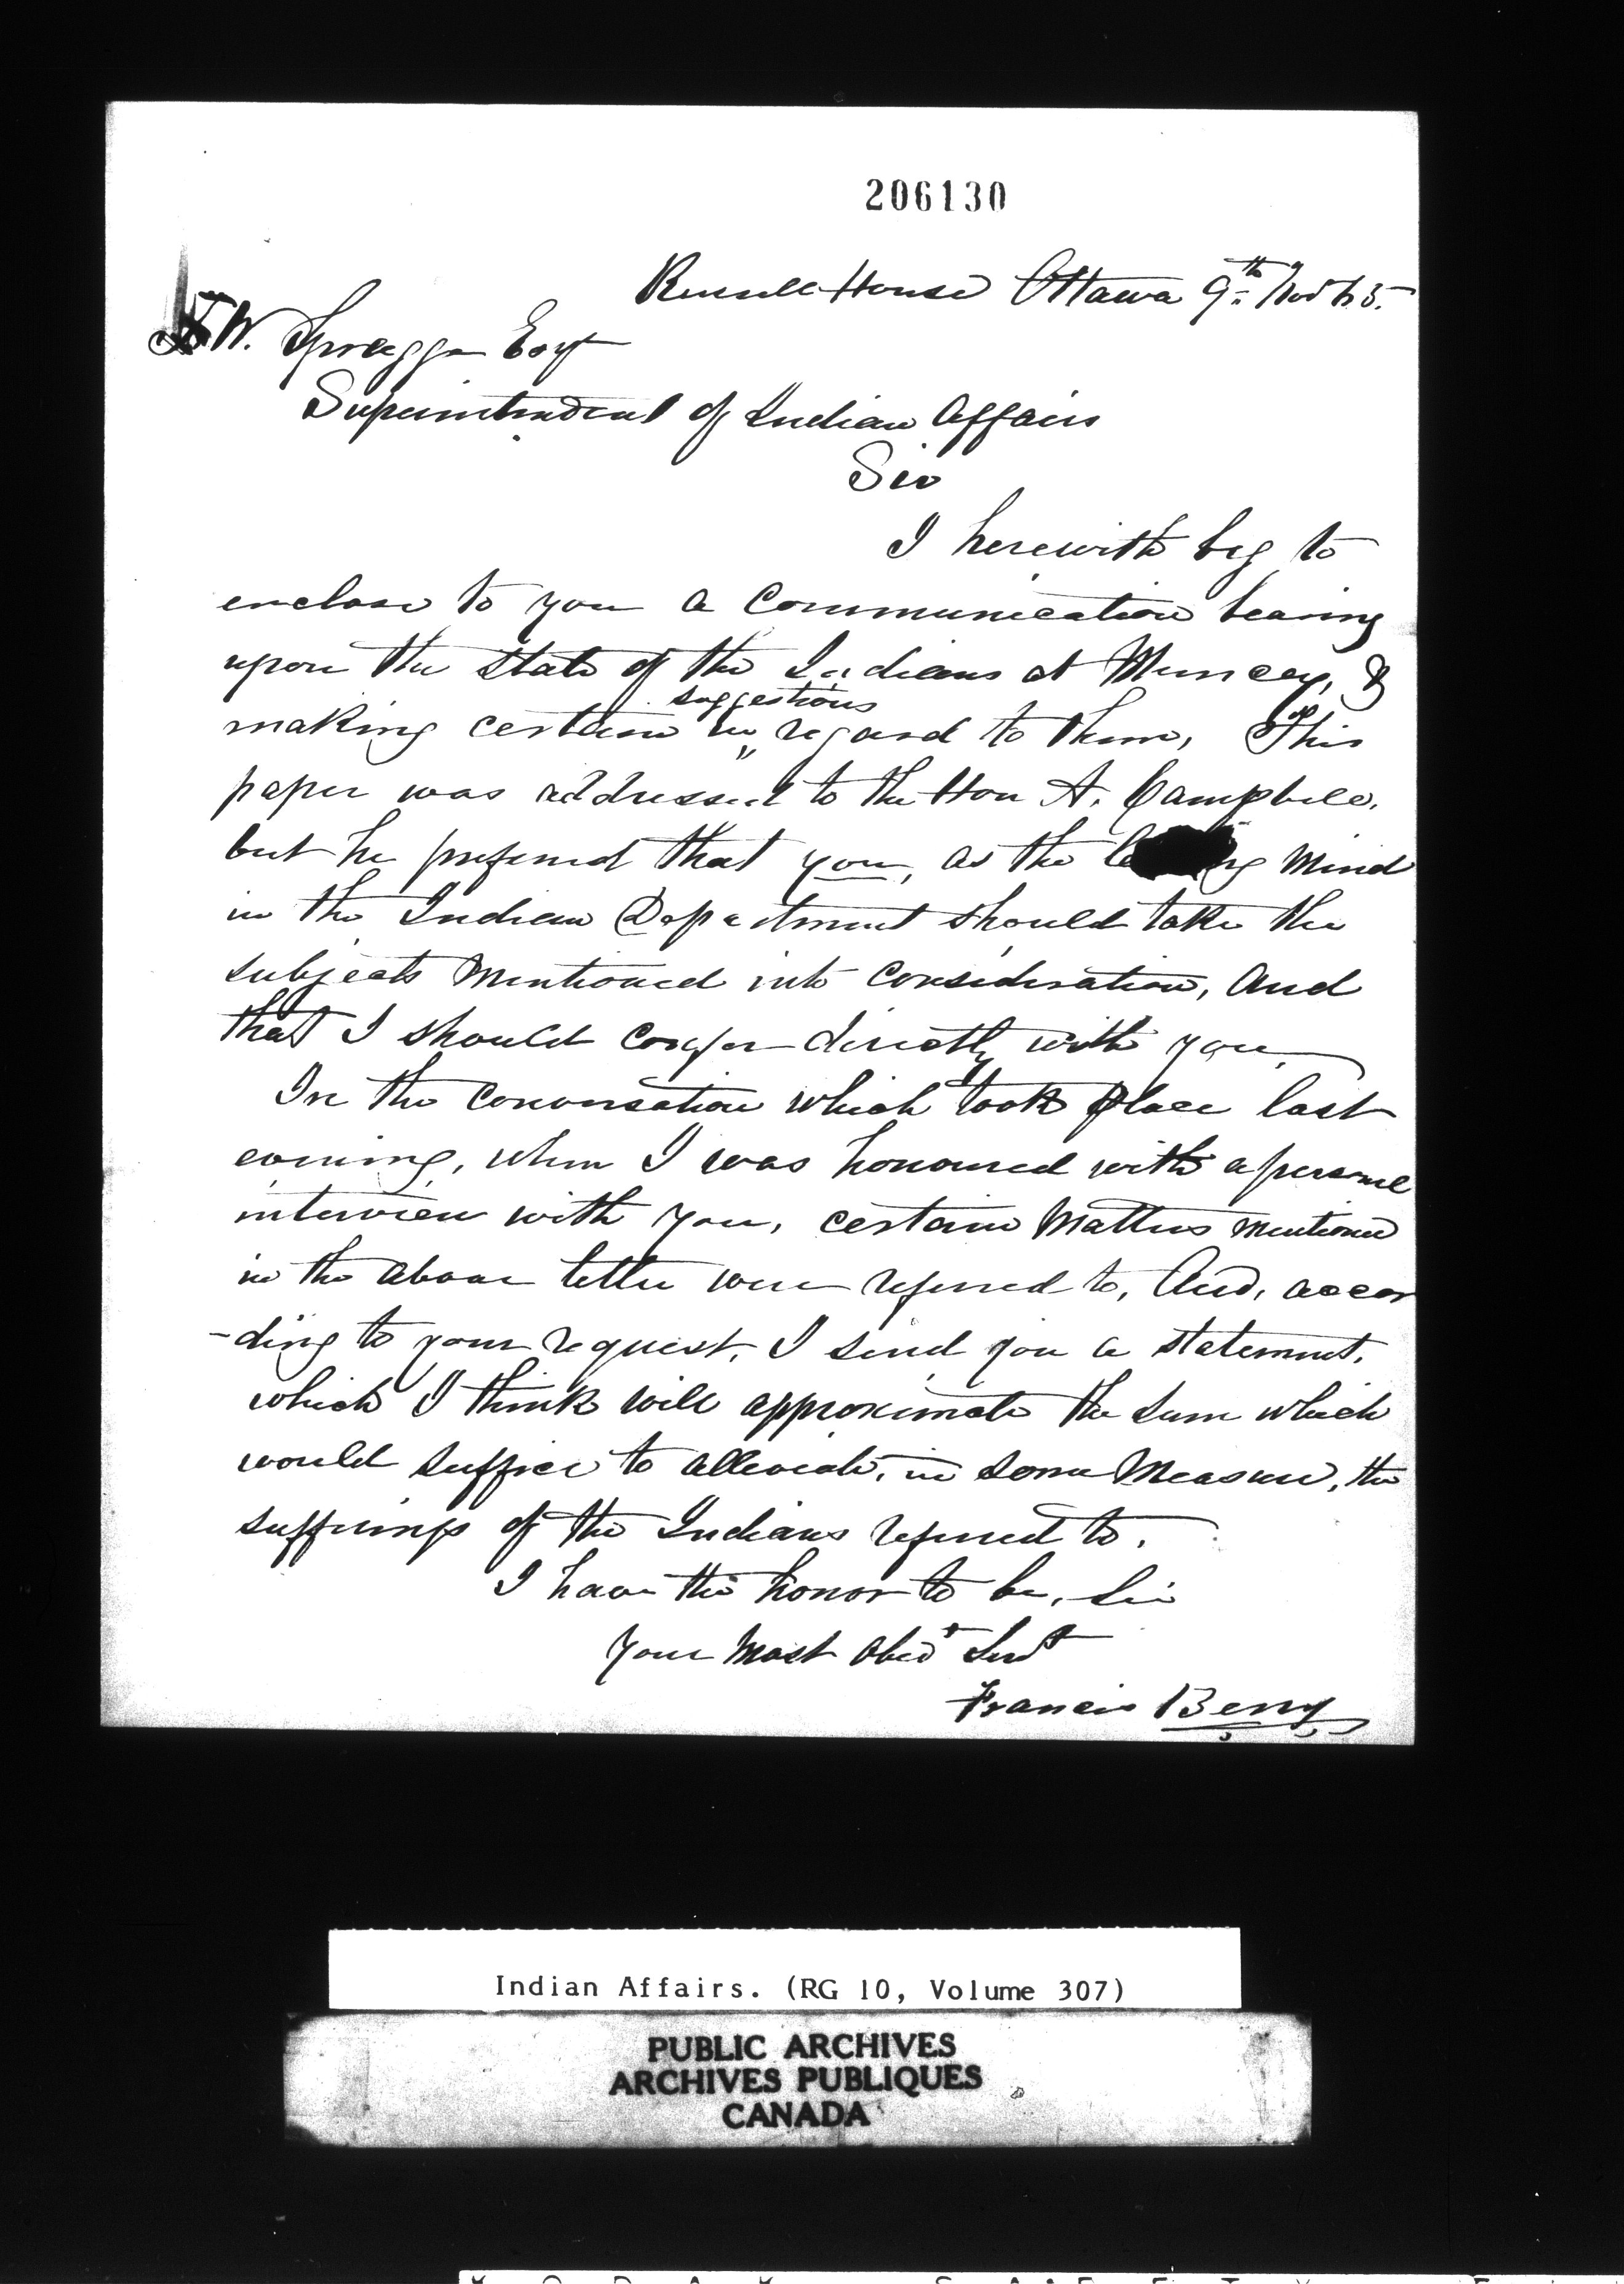 206130
Russell House Ottawa 9th Nov 65.
W. Spragge Esqr
Superintendent of Indian Affairs
Sir
I herewith beg to
enclose to you a Communication bearing
upon the state of the Indians at Muncey, &
suggestions
making certain in regard to them, This
paper was addressed to the Hon A. Campbell,
but he preferred that you, as the mind
in the Indian Department should take the
subjects mentioned into Consideration, And
that I should confer directly with you.
In the Conversation which took place last
evening, when I was honoured with a personal
interview with you, certain Matters mentioned
in the above letter were referred to, And, accor
-ding to your request, I send you a statement,
which I think will approximate the sum which
would suffice to alleviate, in some Measure, the
sufferings of the Indians referred to.
I have the honor to be, Sir
Your Most Obedt Servt
Francis Berry
Indian Affairs. (RG 10, Volume 307)
PUBLIC ARCHIVES
ARCHIVES PUBLIQUES
CANADA